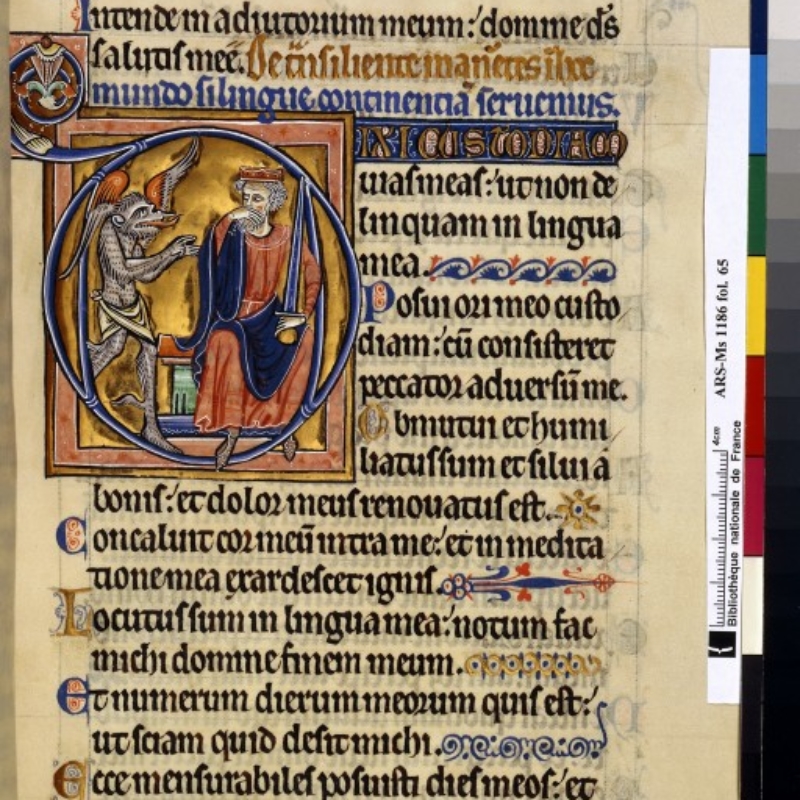 Intende in adiutorium meum: domine ds̄
salutis meę. 
mundo si lingue continentiā seruemus.
DIXI CUSTODIAM
uias meas: ut non de
linquam in lingua
mea.
Posui ori meo custo
diam: cū consisteret
peccator aduersū me.
Obmutui et humi
liatus sum et silui a
bonis: et dolor meus renouatus est.
Concaluit cor meū intra me: et in medita
tione mea exardescet ignis.
Locutus sum in lingua mea: notum fac
michi domine finem meum.
Et numerum dierum meorum quis est:
ut sciam quid desit michi.
Ecce mensurabiles posuisti dies meos: et
ARS-Ms 1186 fol. 65
4cm
Bibliothèque nationale de France